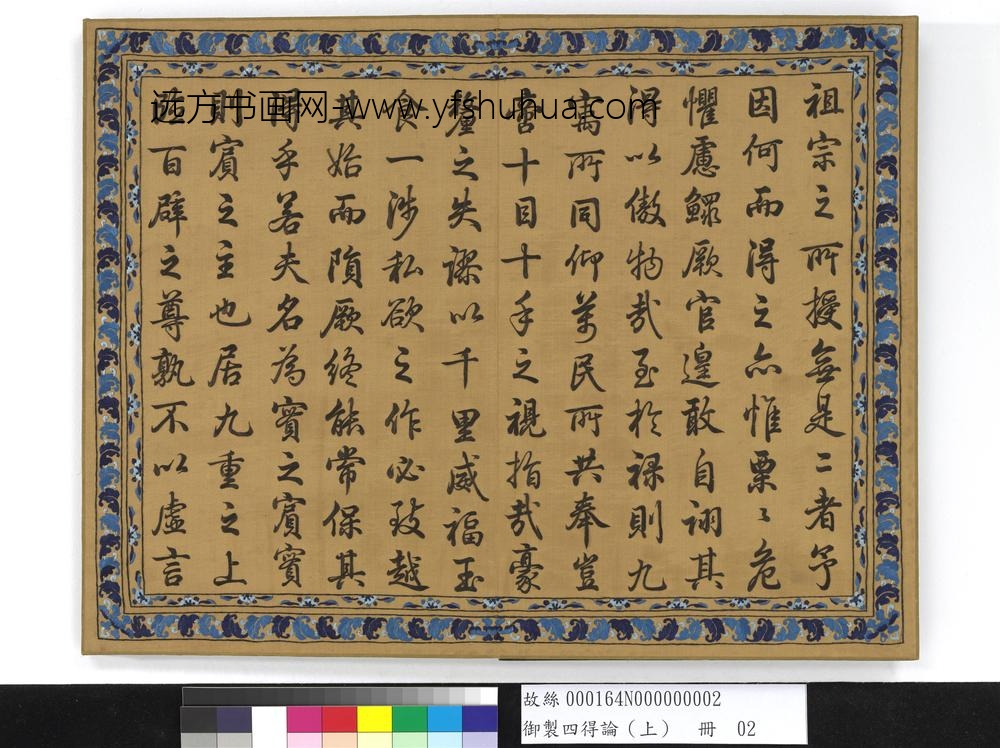 祖宗之所授無是二者予
因何而得之亦惟栗々危
懼慮鰥厥官遑敢自詡其
得以傲物哉至於祿則九
寓所同仰萬民所共奉豈
啻十目十手之視指哉豪
釐之失謬以千里威福玉
食一涉私欲之作必致越
其始而隕厥終能常保其
祿乎若夫名為實之賓實
則賓之主也居九重之上
百辟之尊孰不以虛言
远方书画网-www.yfshuhua.com
故絲000164N000000002
御製四得論（上） 冊 02